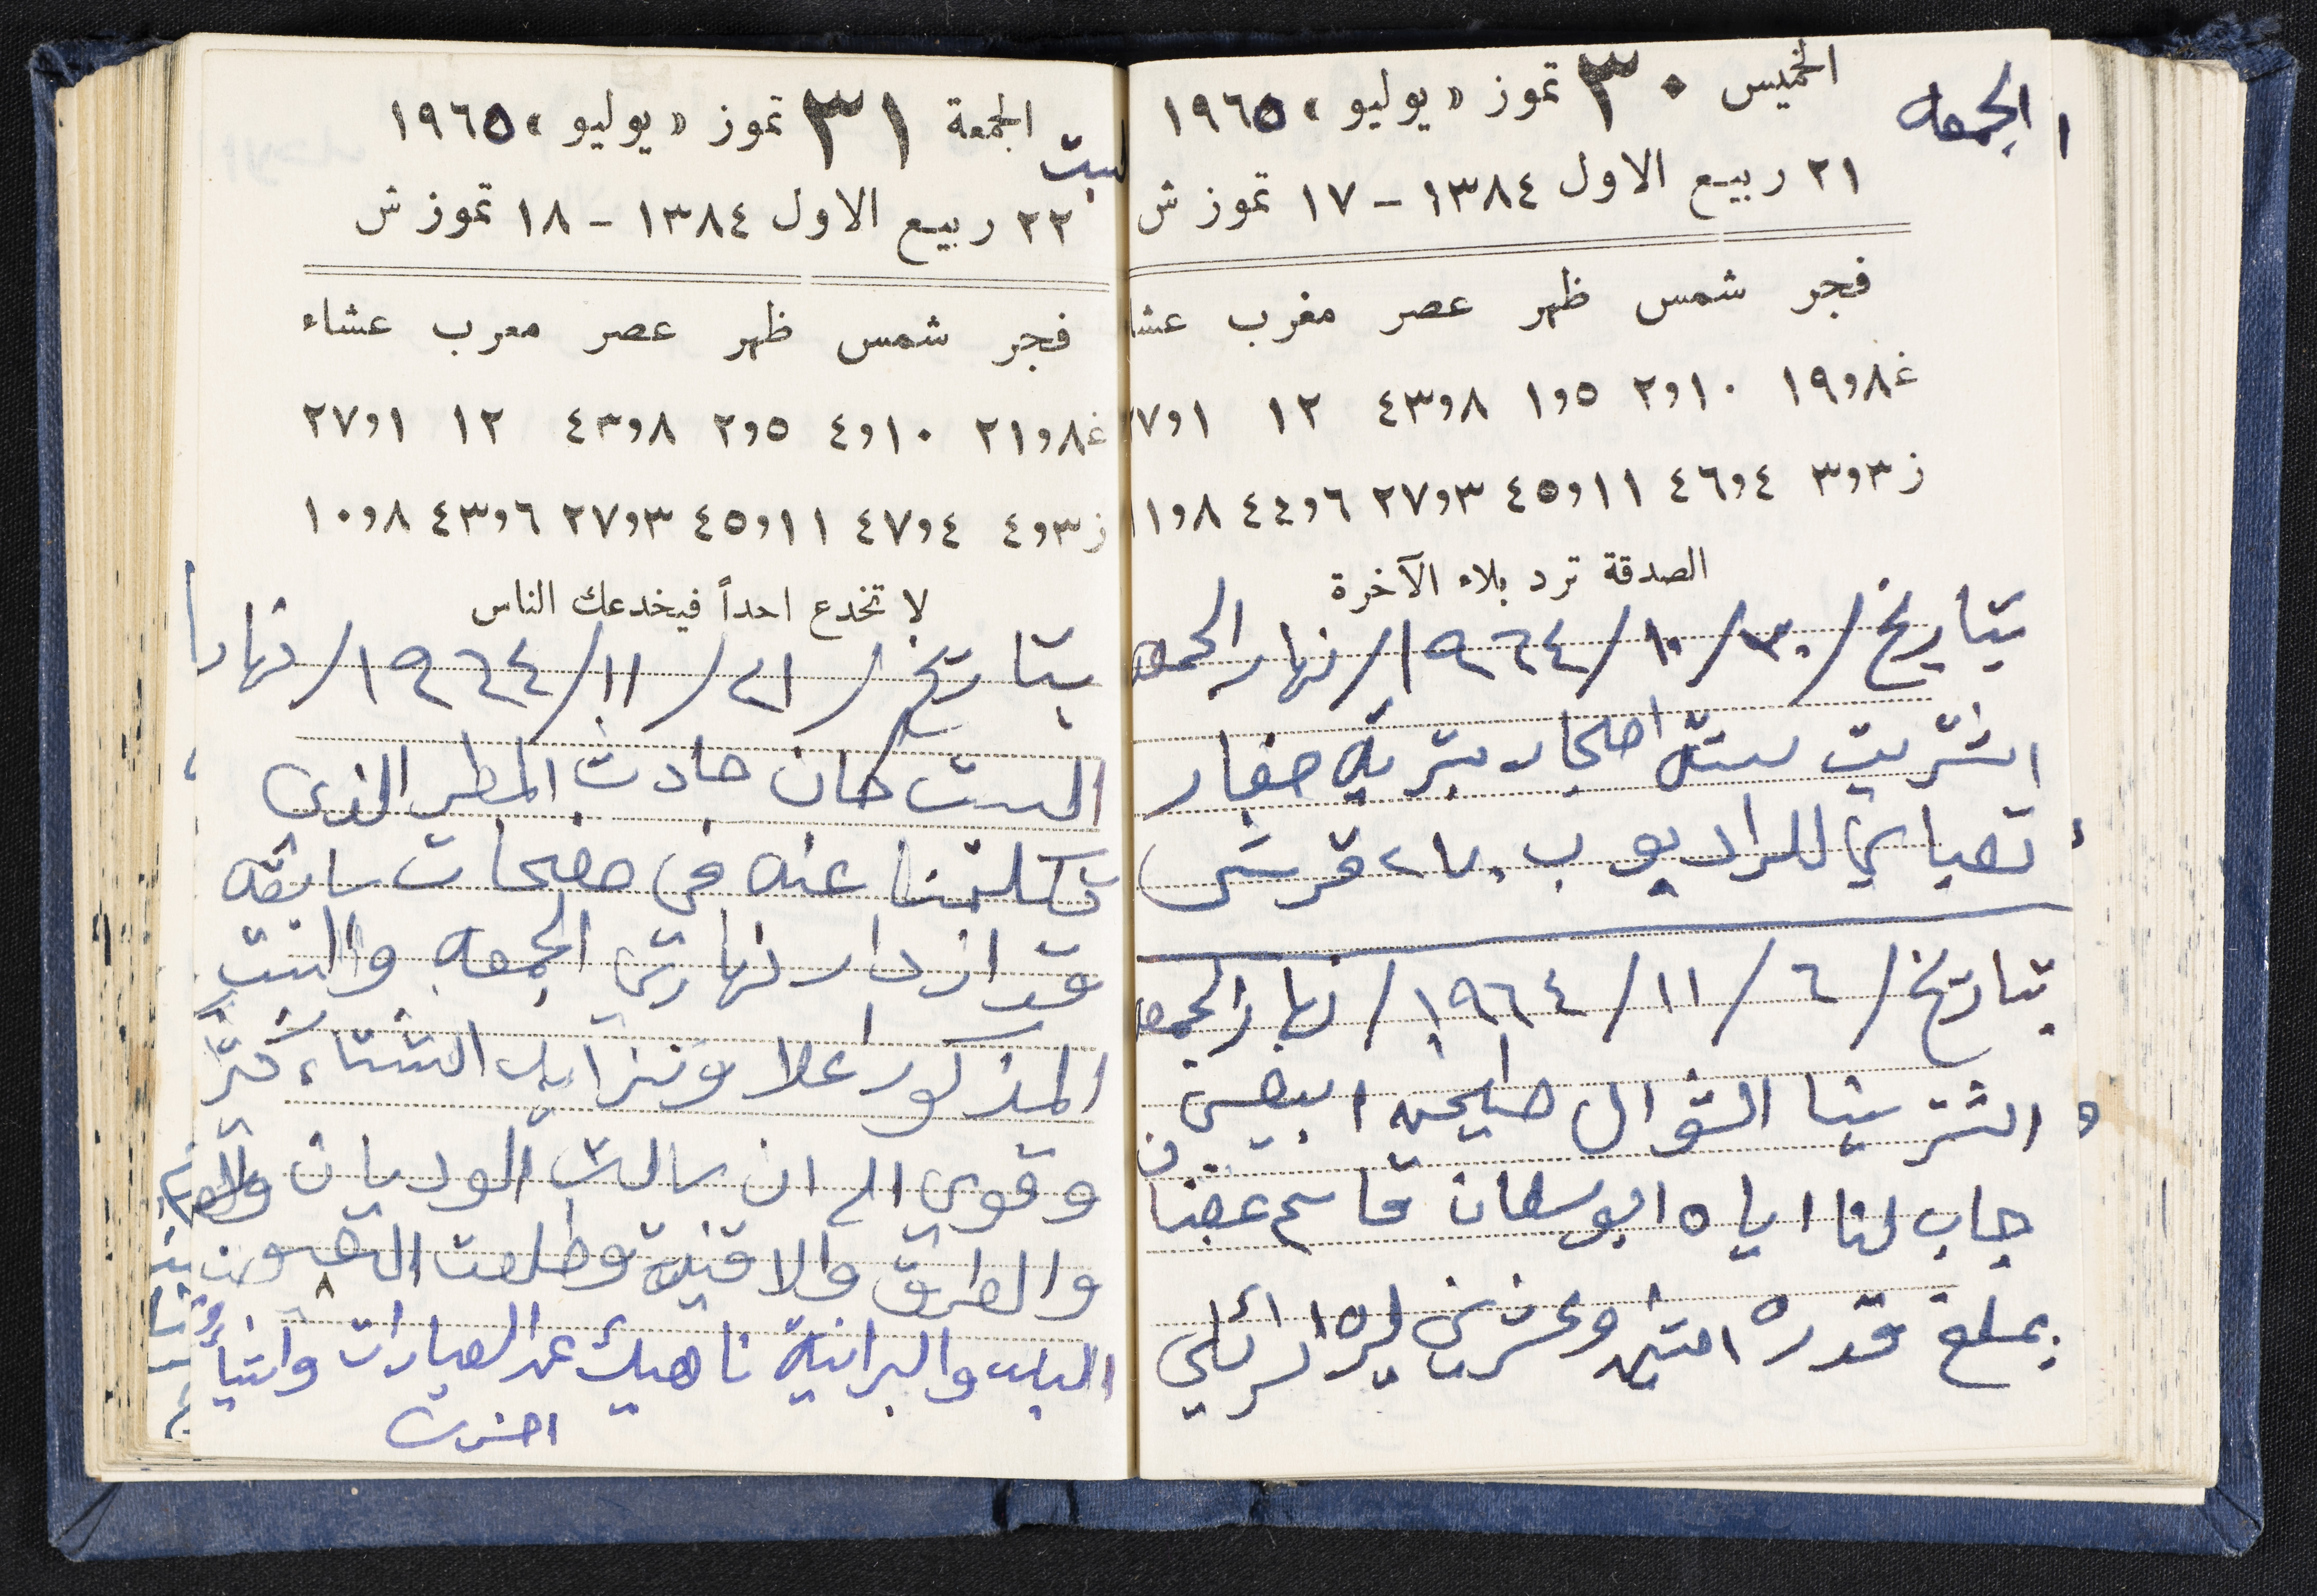 الجمعه
الخميس ٣٠ تموز «يوليو» ١٩٦٥
٢١ ربيع الاول ١٣٨٤ – ١٧ تموز ش
فجر شمس ظهر عصر مغرب عشا
غ ٨و١٩ ١٠و٢ ٥و١ ٨و٤٣ ١٢ ١و٢٧
ز ٣و٣ ٤و٤٦ ١١و٤٥ ٣و٢٧ ٦و٤٤ ٨و١١
الصدقة ترد بلاء الآخرة
بتاريخ /٣٠/١٠/١٩٦٤/ نهار الجمعه
اشتريت ستة احجار بتريه صغار
تصباي للراديو ب ٢٧٠ قرش
بتاريخ /٦/١١/١٩٦٤/ نهار الجمعه
اشترينا الشوال طحين ابيض
جاب لنا اياه ابو سلمان قاسم غضبان
بمبلغ قدره اثنين وعشرين ليره اسرائيلي
سبت
الجمعة ٣١ تموز «يوليو» ١٩٦٥
٢٢ ربيع الاول ١٣٨٤ – ١٨ تموز ش
فجر شمس ظهر عصر مغرب عشاء
غ ٨و٢١ ١٠و٤ ٥و٢ ٨و٤٣ ١٢ ١و٢٧
ز ٣و٤ ٤و٤٧ ١١و٤٥ ٣و٢٧ ٦و٤٣ ٨و١٠
لا تخدع احداً فيخدعك الناس
بتاريخ /٢١/١١/١٩٦٤/ نهار
السبت كان حادث المطر الذي
تكلمنا عنه في صفحات سابقه
قد ازداد نهاري الجمعه والسبت
المذكور اعلا وتزايد الشتاء
وقوي الى ان سالت الوديان
والطرق والاقنية وطلعت العيون
البلد والبرانية ناهيك عن العبارات واشيأ
اخرى